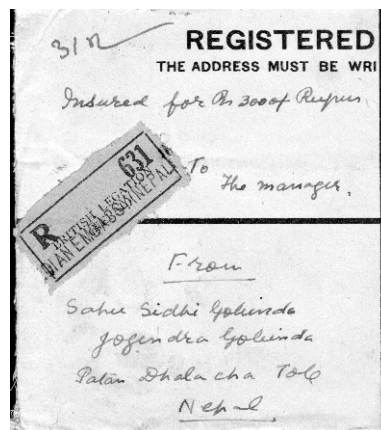 3/12
REGISTERED
THE ADDRESS MUST BE WRI
Insured for Rs 3000/ Rupees
R
631
BRITISH LEGATION
INDIAN EMBASSY NEPAL
To
The manager.
From
Sahu Sidhi Gobinda
Jogendra Gobinda
Patan Dhalacha Tole
Nepal.